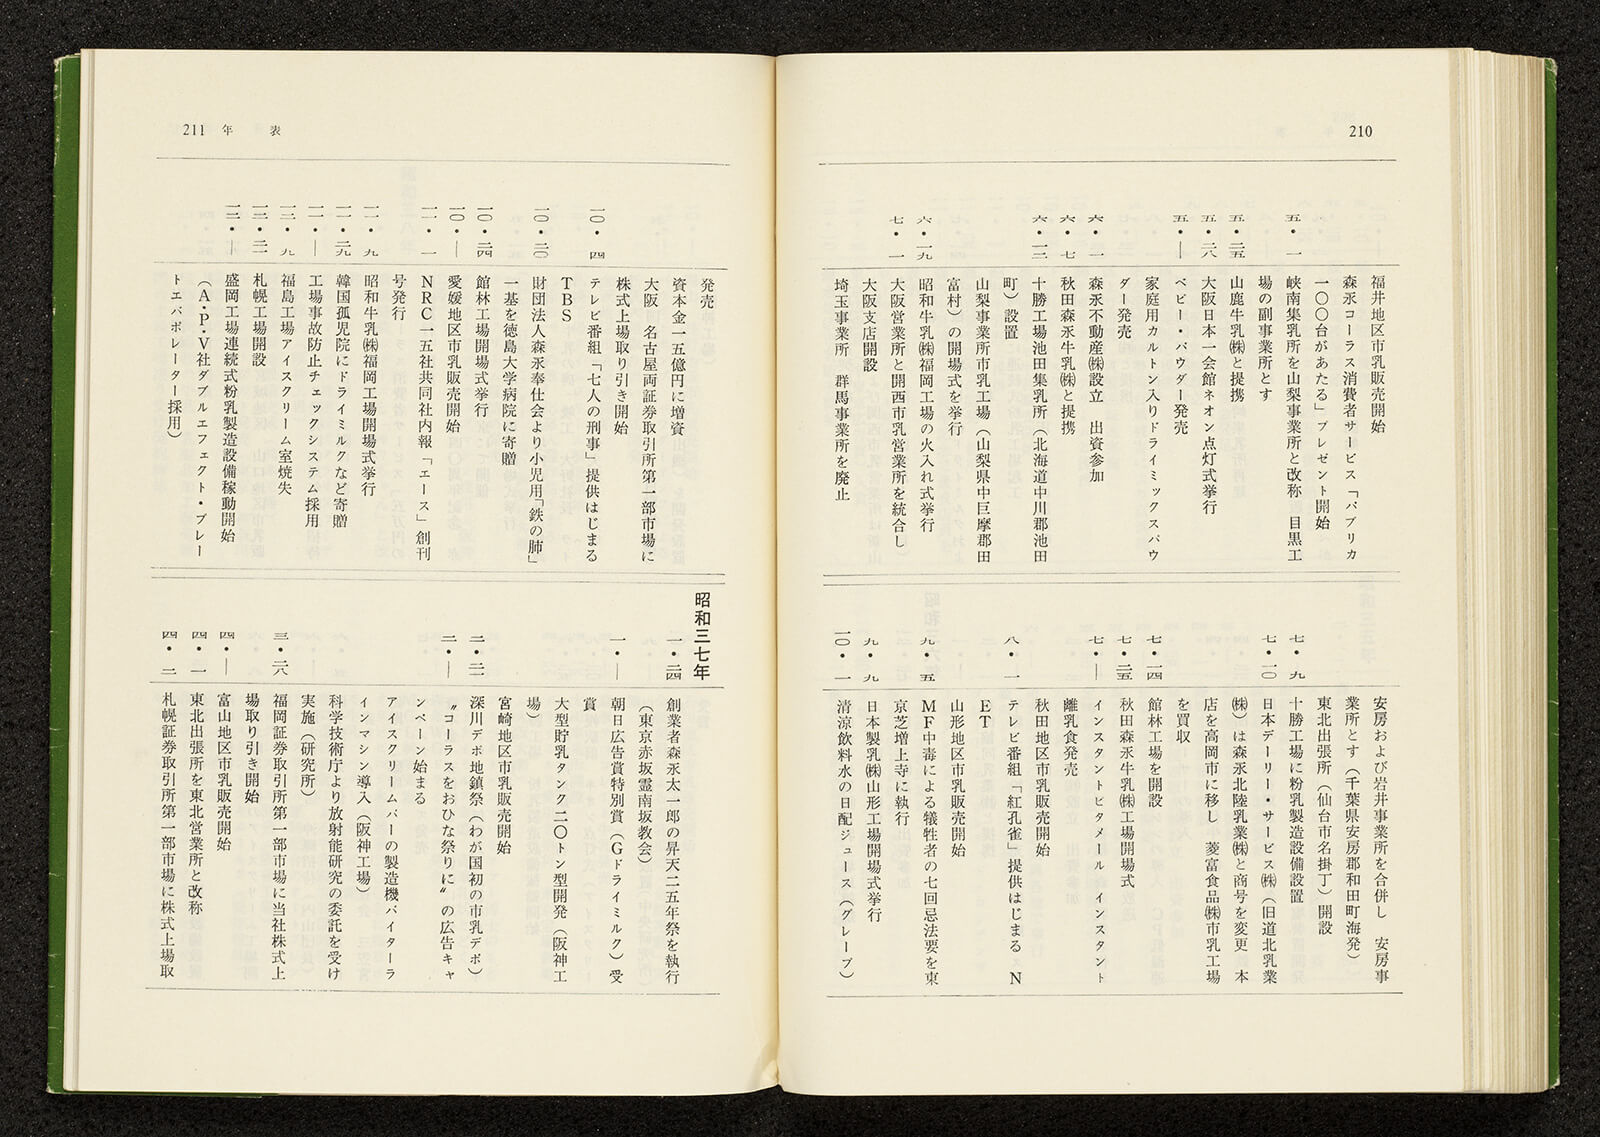 210
福井地区市乳販売開始
森永コーラス消費者サービス「パプリカ
一〇〇台があたる」プレゼント開始
五・一 峡南集乳所を山梨事業所と改称　目黒工
場の副事業所とす
五・二五 山鹿牛乳㈱と提携
五・二八 大阪日本一会館ネオン点灯式挙行
五・― ベビー・パウダー発売
家庭用カルトン入りドライミックスパウ
ダー発売
六・一 森永不動産㈱設立　出資参加
六・七 秋田森永牛乳㈱と提携
六・一二 十勝工場池田集乳所（北海道中川郡池田
町）設置
山梨事業所市乳工場（山梨県中巨摩郡田
富村）の開場式を挙行
六・一九 昭和牛乳㈱福岡工場の火入れ式挙行
七・一 大阪営業所と関西市乳営業所を統合し
大阪支店開設
埼玉事業所　群馬事業所を廃止
安房および岩井事業所を合併し　安房事
業所とす（千葉県安房郡和田町海発）
東北出張所（仙台市名掛丁）開設
七・九 十勝工場に粉乳製造設備設置
七・一〇 日本デーリー・サービス㈱（旧道北乳業
㈱）は森永北陸乳業㈱と商号を変更　本
店を高岡市に移し　菱富食品㈱市乳工場
を買収
七・一四 館林工場を開設
七・二五 秋田森永牛乳㈱工場開場式
七・― インスタントビタメール　インスタント
離乳食発売
秋田地区市乳販売開始
八・一 テレビ番組「紅孔雀」提供はじまる　N
ET
山形地区市乳販売開始
九・五 MF中毒による犠牲者の七回忌法要を東
京芝増上寺に執行
九・九 日本製乳㈱山形工場開場式挙行
一〇・一 清涼飲料水の日配ジュース（グレープ）
211　年　表
発売
資本金一五億円に増資
大阪　名古屋両証券取引所第一部市場に
株式上場取り引き開始
一〇・四 テレビ番組「七人の刑事」提供はじまる
TBS
一〇・二〇 財団法人森永奉仕会より小児用「鉄の肺」
一基を徳島大学病院に寄贈
一〇・二四 館林工場開場式挙行
一〇・― 愛媛地区市乳販売開始
一一・一 NRC一五社共同社内報「エース」創刊
号発行
一一・九 昭和牛乳㈱福岡工場開場式挙行
一一・二九 韓国孤児院にドライミルクなど寄贈
一一・― 工場事故防止チェックシステム採用
一二・九 福島工場アイスクリーム室焼失
一二・二一 札幌工場開設
一二・― 盛岡工場連続式粉乳製造設備稼動開始
（A・P・V社ダブルエフェクト・プレー
トエバポレーター採用）
昭和三七年
一・二四 創業者森永太一郎の昇天二五年祭を執行
（東京赤坂霊南坂教会）
一・― 朝日広告賞特別賞（Gドライミルク）受
賞
大型貯乳タンク二〇トン型開発（阪神工
場）
宮崎地区市乳販売開始
二・二一 深川デポ地鎮祭（わが国初の市乳デポ）
二・― “コーラスをおひな祭りに”の広告キャ
ンペーン始まる
アイスクリームバーの製造機バイターラ
インマシン導入（阪神工場）
科学技術庁より放射能研究の委託を受け
実施（研究所）
三・二八 福岡証券取引所第一部市場に当社株式上
場取り引き開始
四・― 富山地区市乳販売開始
四・一 東北出張所を東北営業所と改称
四・二 札幌証券取引所第一部市場に株式上場取